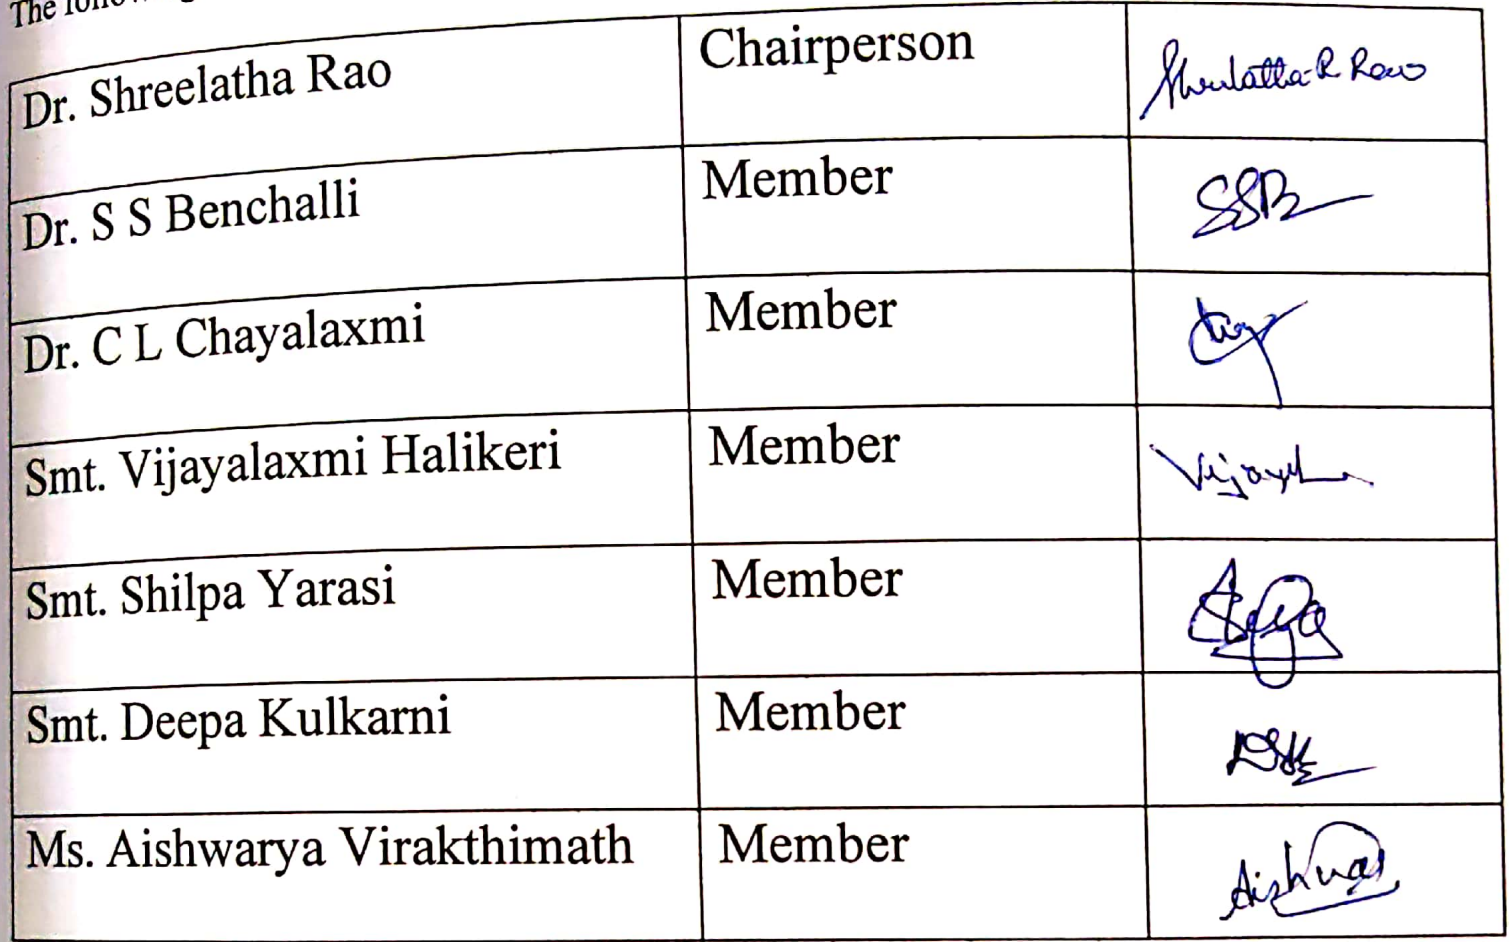 The
Dr. Shreelatha Rao Chairperson Shreelatha R Rao
Dr. S S Benchalli Member SSB
Dr. C L Chayalaxmi Member
Smt. Vijayalaxmi Halikeri Member
Smt. Shilpa Yarasi Member
Smt. Deepa Kulkarni Member
Ms. Aishwarya Virakthimath Member